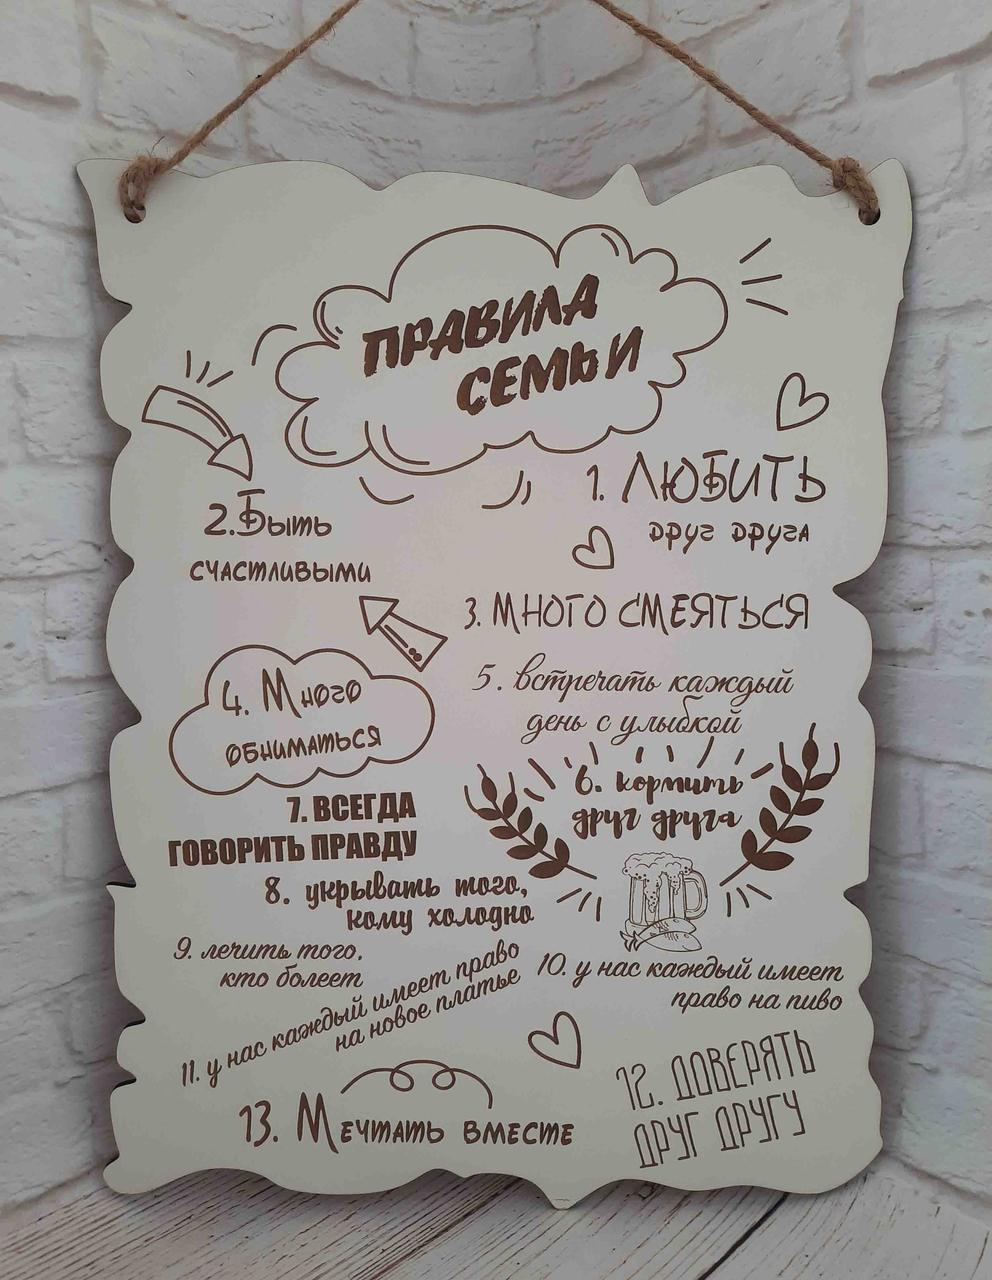 ПРАВИЛА
СЕМЬИ
1. ЛЮБИТЬ
друг друга
2. Быть
счастливыми
3. МНОГО СМЕЯТЬСЯ
4. Много
обниматься
5. встречать каждый
день с улыбкой
6. кормить
друг друга
7. ВСЕГДА
ГОВОРИТЬ ПРАВДУ
8. укрывать того,
кому холодно
9. лечить того,
кто болеет
10. у нас каждый имеет
право на пиво
11. у нас каждый имеет право
на новое платье
12. ДОВЕРЯТЬ
ДРУГ ДРУГУ
13. Мечтать вместе